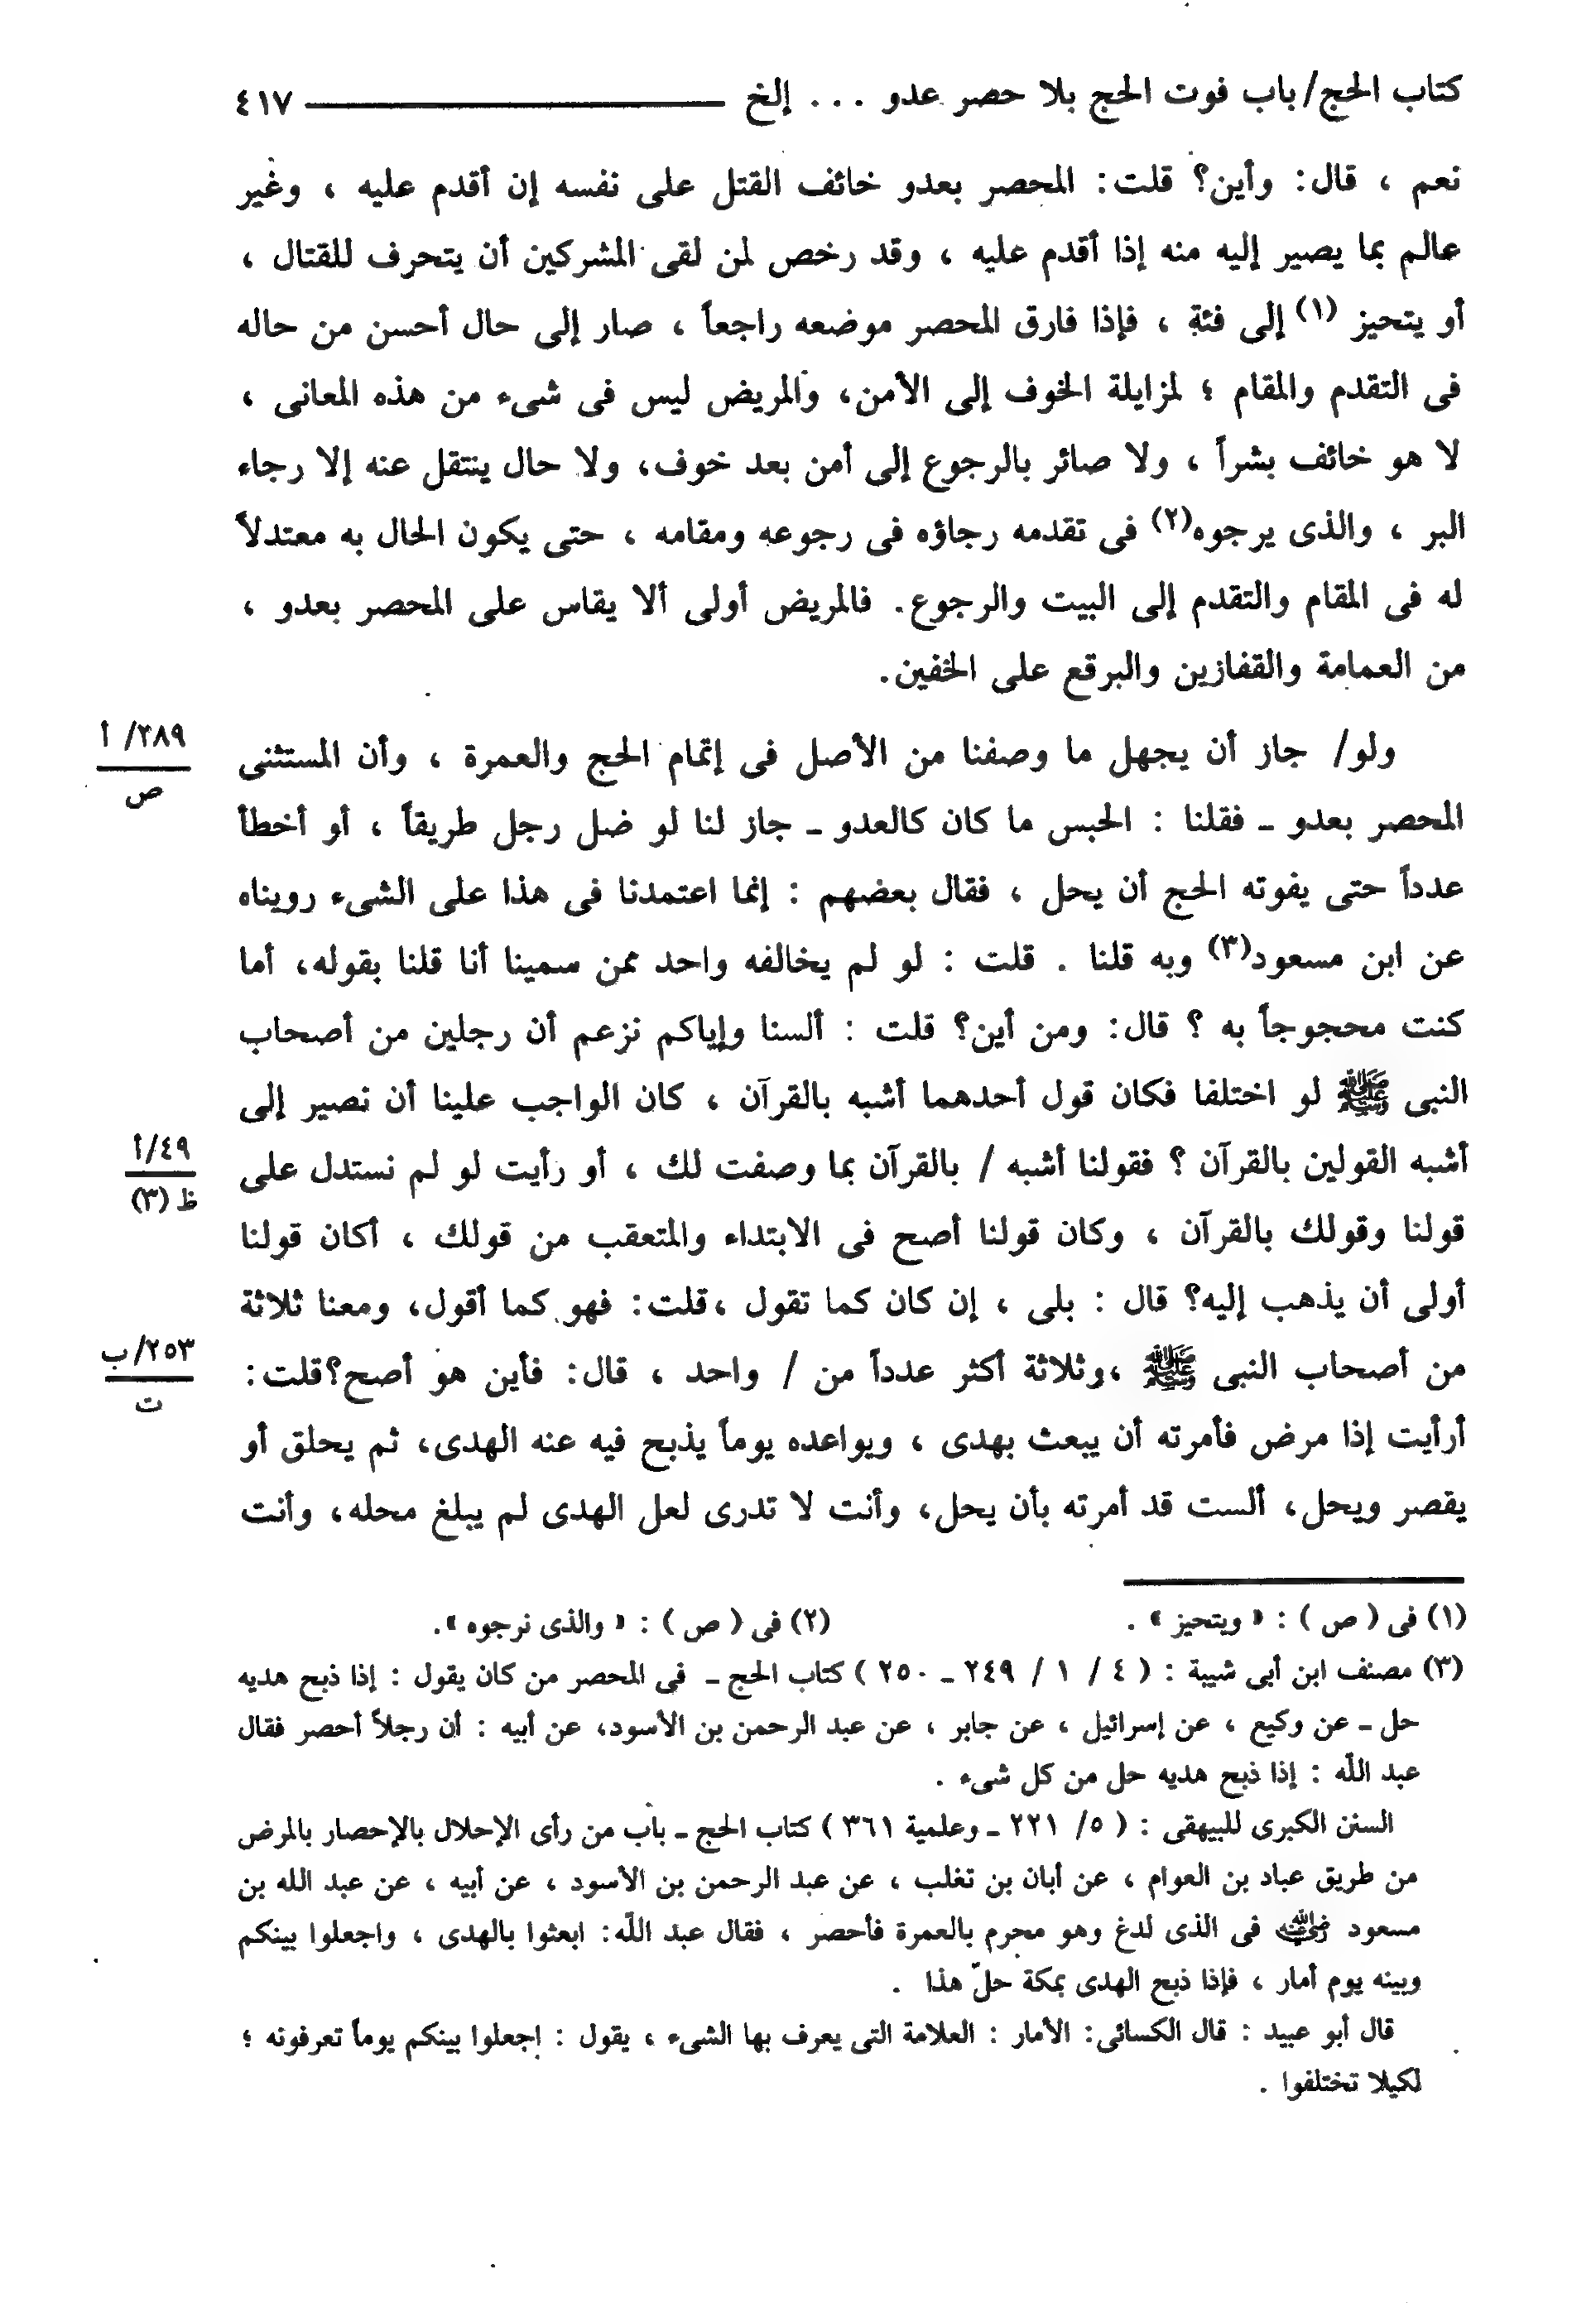 كتاب الحج/ باب فوت الحج بلا حصر عدو . . . إلخ ٤١٧
نعم ، قال: وأين؟ قلت: المحصر بعدو خائف القتل على نفسه إن أقدم عليه ، وغير
عالم بما يصير إليه منه إذا أقدم عليه ، وقد رخص لمن لقى المشركين أن يتحرف للقتال ،
أو يتحيز (١) إلى فئة ، فإذا فارق المحصر موضعه راجعاً ، صار إلى حال أحسن من حاله
فى التقدم والمقام ؛ لمزايلة الخوف إلى الأمن، والمريض ليس فى شىء من هذه المعانى ،
لا هو خائف بشراً ، ولا صائر بالرجوع إلى أمن بعد خوف، ولا حال ينتقل عنه إلا رجاء
البر ، والذى يرجوه(٢) فى تقدمه رجاؤه فى رجوعه ومقامه ، حتى يكون الحال به معتدلاً
له فى المقام والتقدم إلى البيت والرجوع. فالمريض أولى ألا يقاس على المحصر بعدو ،
من العمامة والقفازين والبرقع على الخفين.
ولو/ جاز أن يجهل ما وصفنا من الأصل فى إتمام الحج والعمرة ، وأن المستثنى
٢٨٩/ أ
ص
المحصر بعدو ـ فقلنا : الحبس ما كان كالعدو ـ جاز لنا لو ضل رجل طريقاً ، أو أخطأ
عدداً حتى يفوته الحج أن يحل ، فقال بعضهم : إنما اعتمدنا فى هذا على الشىء رويناه
عن ابن مسعود(٣) وبه قلنا . قلت : لو لم يخالفه واحد ممن سمينا أنا قلنا بقوله، أما
كنت محجوجاً به ؟ قال: ومن أين؟ قلت : ألسنا وإياكم نزعم أن رجلين من أصحاب
النبى ﷺ لو اختلفا فكان قول أحدهما أشبه بالقرآن ، كان الواجب علينا أن نصير إلى
أشبه القولين بالقرآن ؟ فقولنا أشبه / بالقرآن بما وصفت لك ، أو رأيت لو لم نستدل على
٤٩/أ
ظ (٣)
قولنا وقولك بالقرآن ، وكان قولنا أصح فى الابتداء والمتعقب من قولك ، أكان قولنا
أولى أن يذهب إليه؟ قال : بلى ، إن كان كما تقول ،قلت: فهو كما أقول، ومعنا ثلاثة
من أصحاب النبى ﷺ ،وثلاثة أكثر عدداً من / واحد ، قال: فأين هو أصح؟قلت:
٢٥٣/ب
ت
أرأيت إذا مرض فأمرته أن يبعث بهدى ، ويواعده يوماً يذبح فيه عنه الهدى، ثم يحلق أو
يقصر ويحل، ألست قد أمرته بأن يحل، وأنت لا تدرى لعل الهدى لم يبلغ محله، وأنت
(١) فى ( ص ) : « ويتحيز » . (٢) فى ( ص ) : « والذى نرجوه ».
(٣) مصنف ابن أبى شيبة : ( ٤ / ١ / ٢٤٩ ـ ٢٥٠ ) كتاب الحج ـ فى المحصر من كان يقول : إذا ذبح هديه
حل ـ عن وكيع ، عن إسرائيل ، عن جابر ، عن عبد الرحمن بن الأسود، عن أبيه : أن رجلاً أحصر فقال
عبد اللّه : إذا ذبح هديه حل من كل شىء .
السنن الكبرى للبيهقى : ( ٥/ ٢٢١ ـ وعلمية ٣٦١ ) كتاب الحج ـ باب من رأى الإحلال بالإحصار بالمرض
من طريق عباد بن العوام ، عن أبان بن تغلب ، عن عبد الرحمن بن الأسود ، عن أبيه ، عن عبد الله بن
مسعود رضي الله عنه فى الذى لدغ وهو محرم بالعمرة فأحصر ، فقال عبد اللّه: ابعثوا بالهدى ، واجعلوا بينكم
وبينه يوم أمار ، فإذا ذبح الهدى بمكة حلّ هذا .
قال أبو عبيد : قال الكسائى: الأمار : العلامة التى يعرف بها الشىء ، يقول : اجعلوا بينكم يوماً تعرفونه ؛
لكيلا تختلفوا .